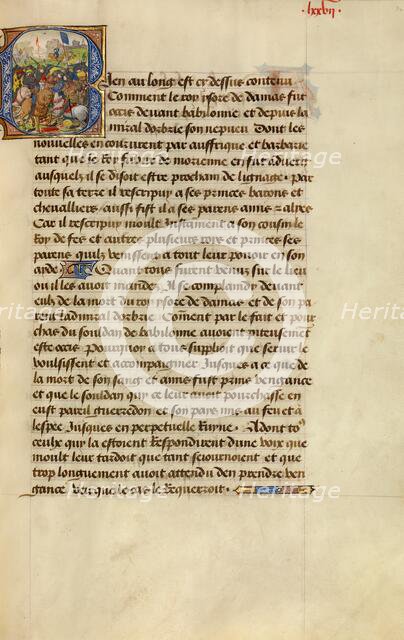 .lxxvij.
Bien au long est cy dessus contenu
Comment le roy ysore de damas fut
occis deuant babilonne et depuis la
miral dorbrie son nepueu Dont les
nouuelles en coururent par auffrique et barbarie
tant que le Roy fabur de morienne en fut aduerty
ausquels il se disoit estre prochain de lignage. Par
toute sa terre il rescripuy a ses princes barons et
cheualliers aussi fist il a ses parens amis alyes
Car il rescripuy moult Instament a son cousin le
Roy de fes et autres plusieurs roys et princes ses
parens quilz venissent a tout leur pouoir en son
ayde Quant tous furent venus sur le lieu
ou il les auoit mandez. Il se complaindy deuant
eulz de la mort du roy ysore de damas et de son pa
rent ladmiral dorbrie. Coment par le fait et pour
chas du souldan de babilonne auoient
este occis Pourquoy a tous supplioit que seruir le
voulsissent et accompaignier Jusques a ce que de
la mort de son sang et amis fust prins vengance
et que le souldan quy ce leur auoit pourchasse en
eust pareil guerredon et son paye mis au feu et a
lespee Jusques en perpetuelle Ruyne. Adont to
ceulx quy la estoient Respondirent dune voix que
moult leur tardoit que tant seiournoient et que
trop longuement auoit attendu den prendre ven
gance Veu que le cas le Requeroit.
Heritage
Heritage
Heritage
Heritage
Heritage
Heritage